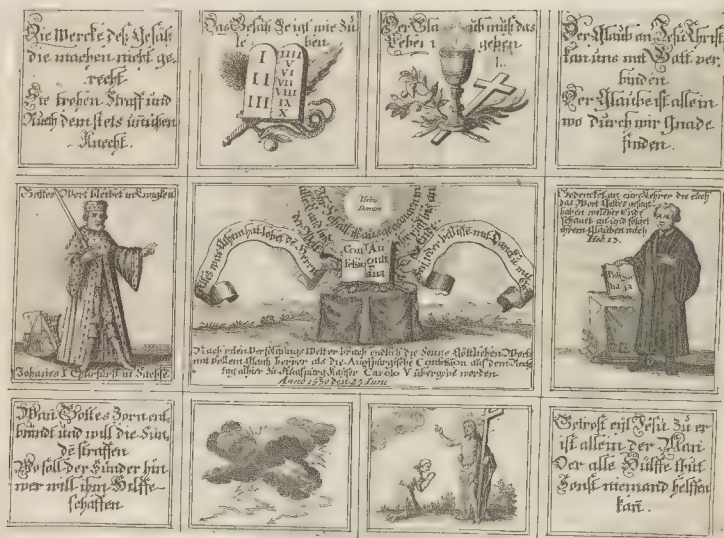 Die Wercke deß Gesätz
die machen nicht ge,
recht
Sie drohen Straff und
Fluch dem stets
Knecht.
Das Gesätz Zeigt wie Zu
le ben
I
II
III
IIII
V
VI
VII
VIII
IX
X
Der Gla ub muß das
Leben geben
Der Glaub an Jesu Christ
kan uns mit Gott ver,
binden
Der Glaube ist allein
wo durch wir Gnade
finden.
Gottes Wort bleibet in Ewigkeit
Johañes I Churfürst in Sachse.
Verbu
Domini
Con
fessio
Au
gusta
ana
Alles was Athem hat lobet dē Herrn
Nach vielen Verfolgungs Wetter brach endlich die Sonne Göttlichen Worts
mit vollem Glantz hervor als die Augspurgische Confession auf dem Reichs
tag alhier Zu Augspurg Kaiser Carolo V übergebē worden
Anno 1530 den 25 Iuni
Gedencket an eure Lehrer die euch
das Wort Gottes gesagt
haben welcher Ende
schauet an und folget
ihrem Glauben nach
Heb 13.
Wañ Gottes Zorn ent,
brandt und will die Sün,
dē straffen
Wo soll der Sünder hin
wer will ihm Hilffe
schaffen
Getrost eyl Jesu Zu er
ist allein der Mañ
Der alle Hülffe thut
Sonst niemand helffen
kañ.